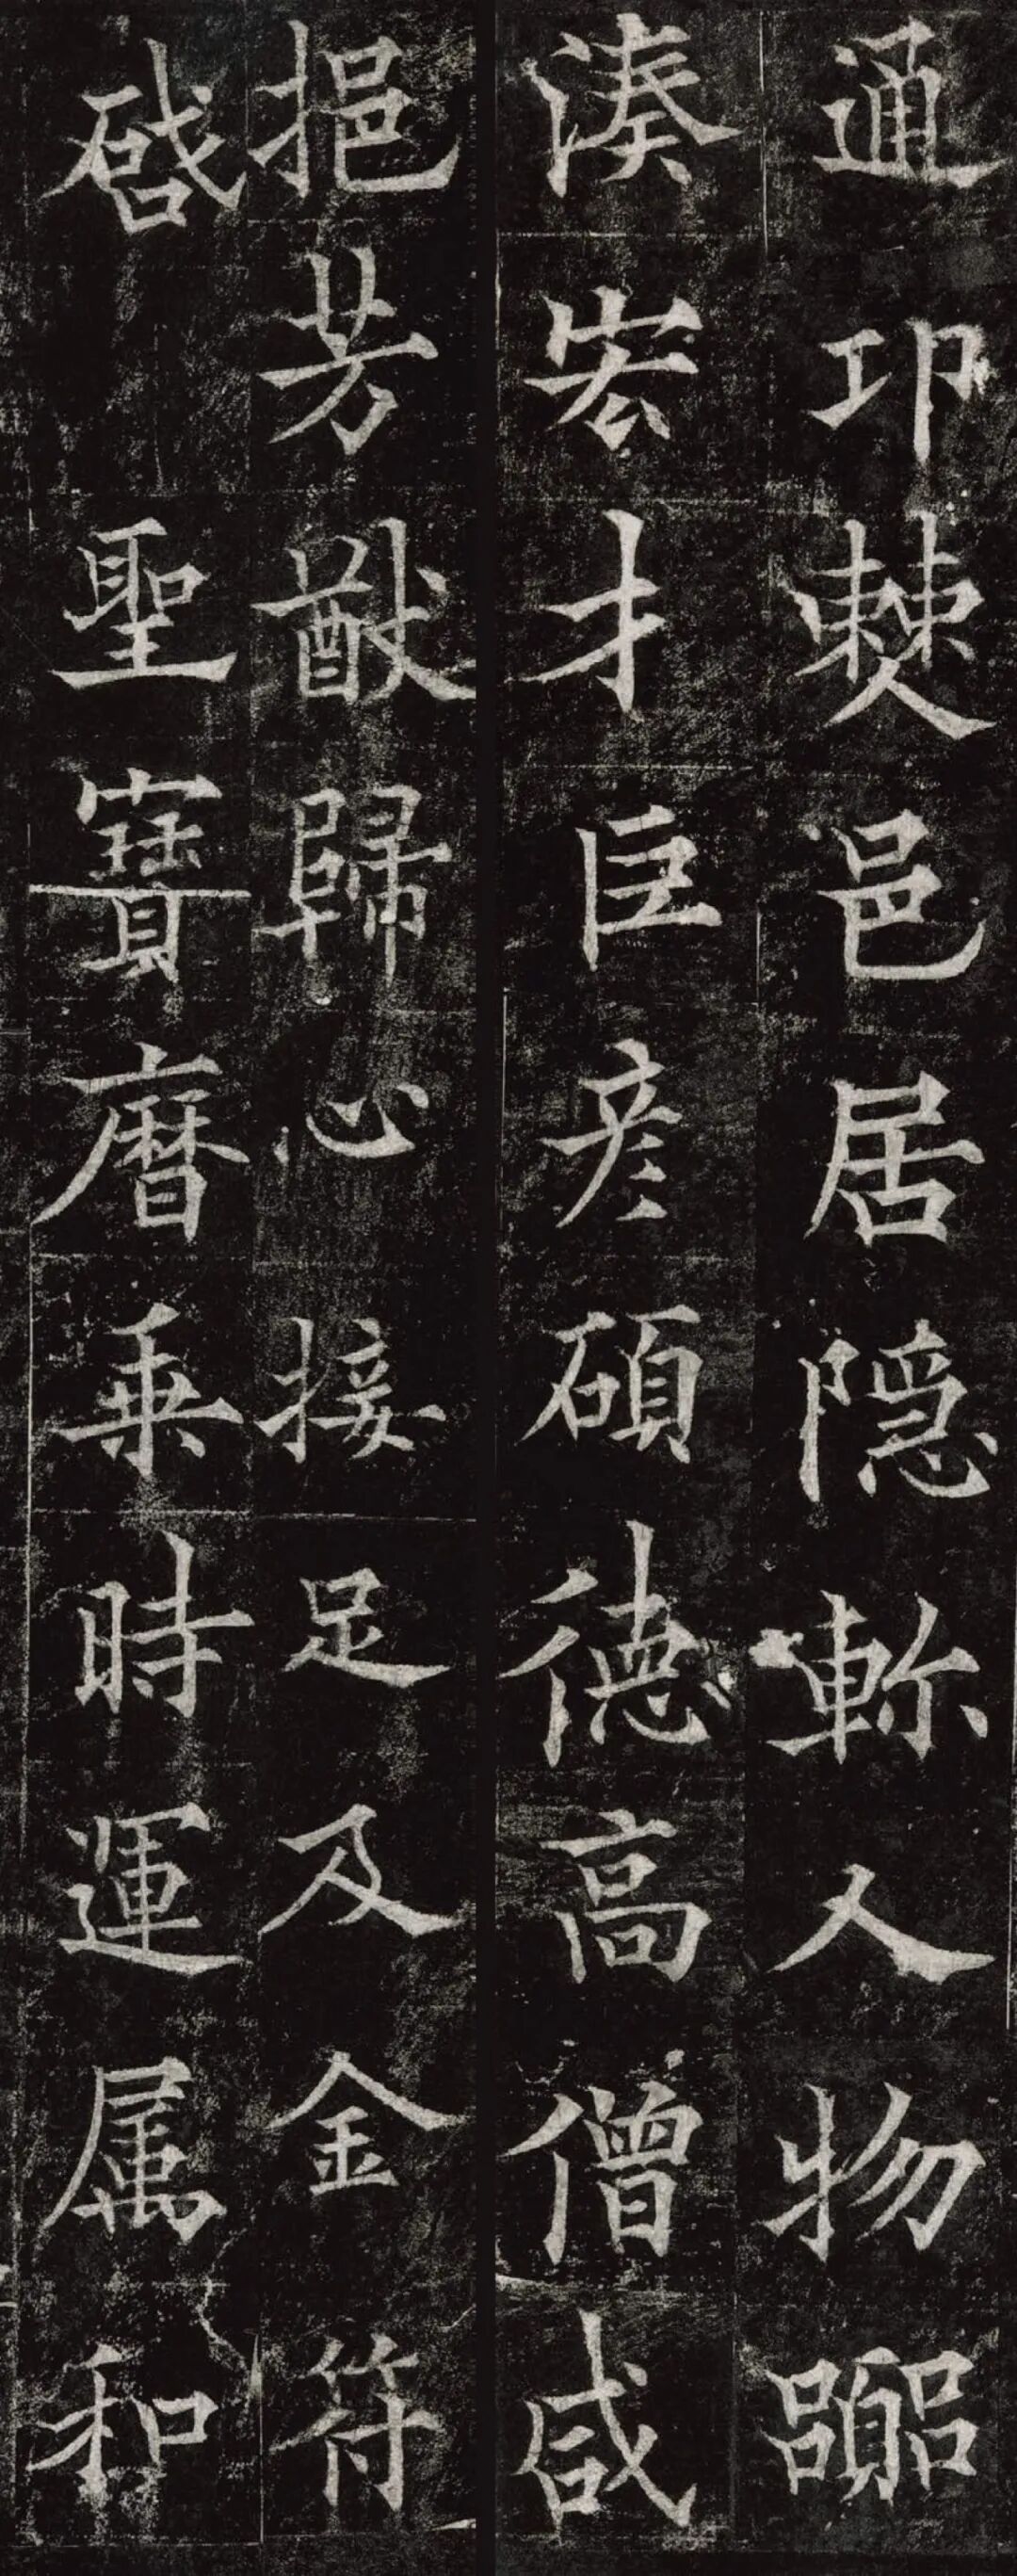 通邛僰邑居隱軫人物囂
湊宏才巨彥碩德高僧咸
挹芳猷歸心接足及金符
啓聖寶曆乘時運屬和